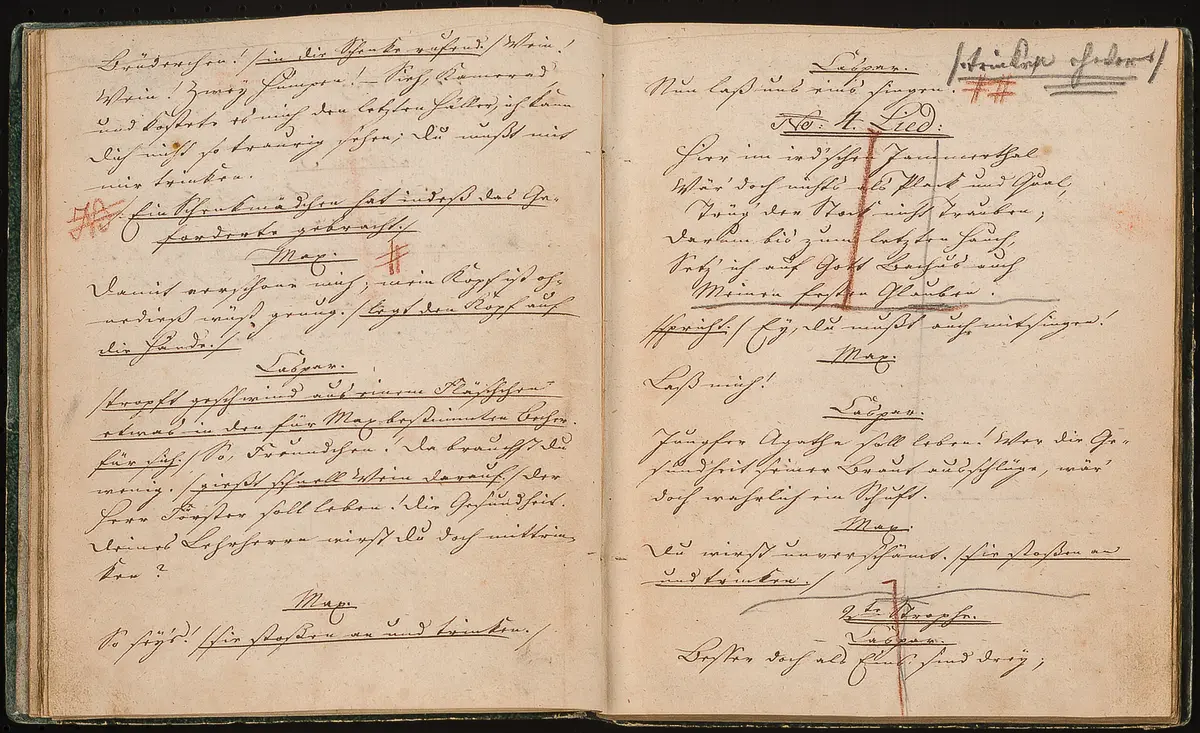 Brüderchen! /in die Schenke rufend./ Wein!
Wein! Zwey Humpen! – Sieh Kamerad
und kostete es mich den letzten Häller, ich kann
dich nicht so traurig sehen; du mußt mit
mir trinken.
/: Ein Schenkmädchen hat indeß das Ge-
forderte gebracht./
Max.
Damit verschone mich; mein Kopf ist oh-
nedieß wüst genug. /legt den Kopf auf
die Hände./
Caspar.
/tropft geschwind aus einem Fläschchen
etwas in den für Max bestimmten Becher.
für sich./ So, Freundchen! Da brauchst du
wenig. /gießt schnell Wein darauf./ Der
Herr Förster soll leben! die Gesundheit
deines Lehrherrn wirst du doch mittrin-
ken?
Max.
So sey's! /sie stoßen an und trinken./
Caspar.
/trinken /
Nun laß uns eins singen
No: 4. Lied:
Hier im ird'schen Jammerthal
Wär' doch nichts als Plack und Quaal,
Trüg' der Stock nicht Trauben;
Darum bis zum letzten Hauch,
Setz' ich auf Gott Bachus auch
Meinen festen Glauben.
/spricht./ Ey, du mußt auch mitsingen!
Max.
Laß mich!
Caspar.
Jungfer Agathe soll leben! Wer die Ge-
sundheit seiner Braut ausschlüge, wär'
doch wahrlich ein Schuft.
Max.
Du wirst unverschämt. /sie stoßen an
und trinken./
2te Strophe.
Caspar.
Besser doch als Eins sind drey;